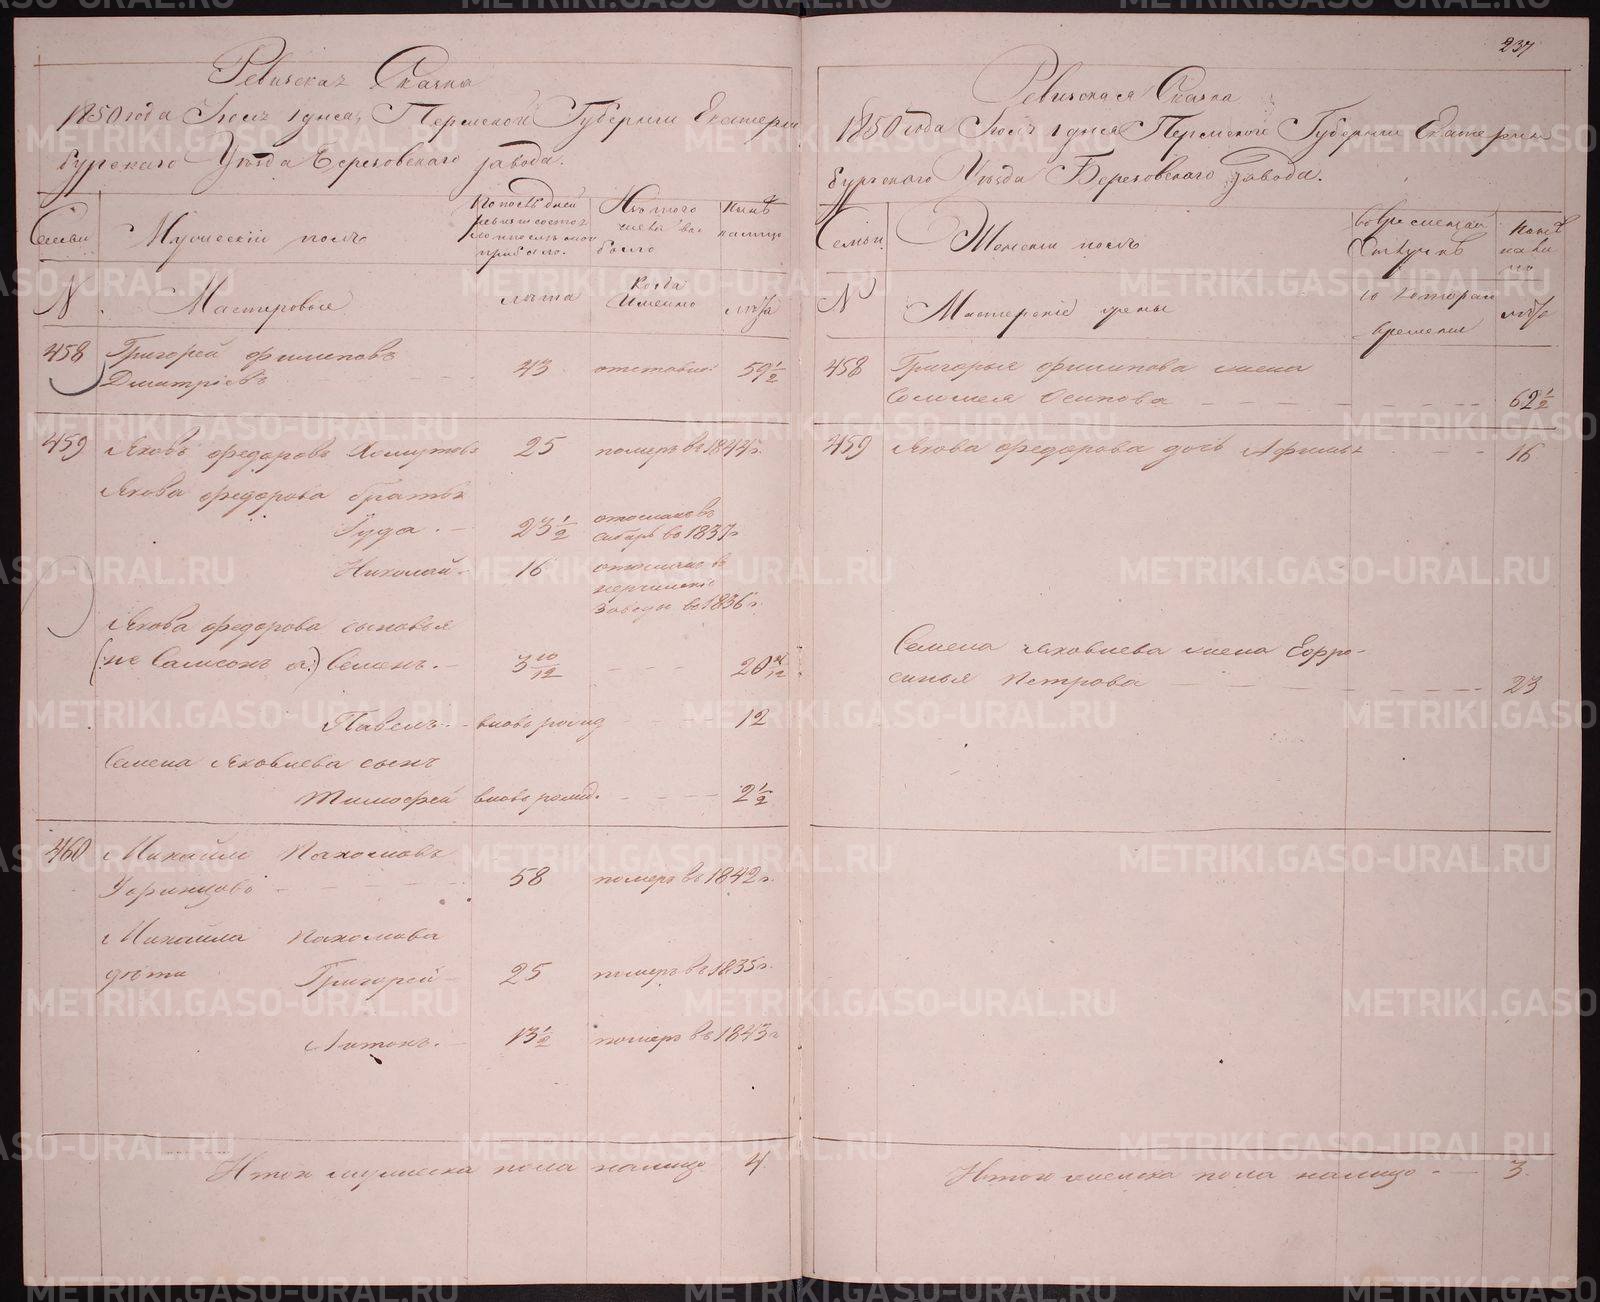 237
Ревизская Сказка
1850 года Июль 1 дня, Пермской Губернии Екатерин
бургского Уѣзда Березовскаго завода.
Семьи
Мужескій полъ
По послѣдней
ревизіи состоя
ло и послѣ оной
прибыло.
Изъ того
числа вы
было
Нынѣ
налицо
N
Мастеровые
лѣта
Когда
Именно
лѣта
458
Григорей Филиповъ
Дмитріевъ
43
отставной
59 1/2
459
Яковъ Федоровъ Хомутовъ
25
померъ въ 1844 г.
Якова Федорова братья
Іуда
23 1/2
отосланъ въ
Сибирь въ 1837 г
Николай
16
отосланъ в
нерчинскіе
Заводы въ 1836 г.
Якова Федорова сыновья
(не Самсонъ а) Семенъ.
3 10/12
20 4/12
Павелъ
вновь рожд
12
Семена Яковлева сынъ
Тимофей
вновь рожд.
2 1/2
460
Михайло Пахомовъ
58
померъ въ 1842 г.
Михайла Пахомова
дѣти
Григорей
25
померъ въ 1835 г.
Антонъ.
13 1/2
померъ въ 1843 г
Итого мужеска пола налицо 4.
Ревизская Сказка
1850 года Июль 1 дня Пермской Губерніи Екатерин
бургского Уѣзда Березовскаго завода.
Семьи
Женскій полъ
Во временной
Отлучкѣ
Нынѣ
нали
цо
N
Мастерскіе жены
Съ котораго
времени
лѣта
458
Григорья Филипова жена
Соломея Осипова
62 1/2
459
Якова Федорова дочь Афимья
16
Семена Яковлева жена Ефро-
синья Петрова
23
Итого женска пола налицо 3.
METRIKI.GASO-URAL.RU